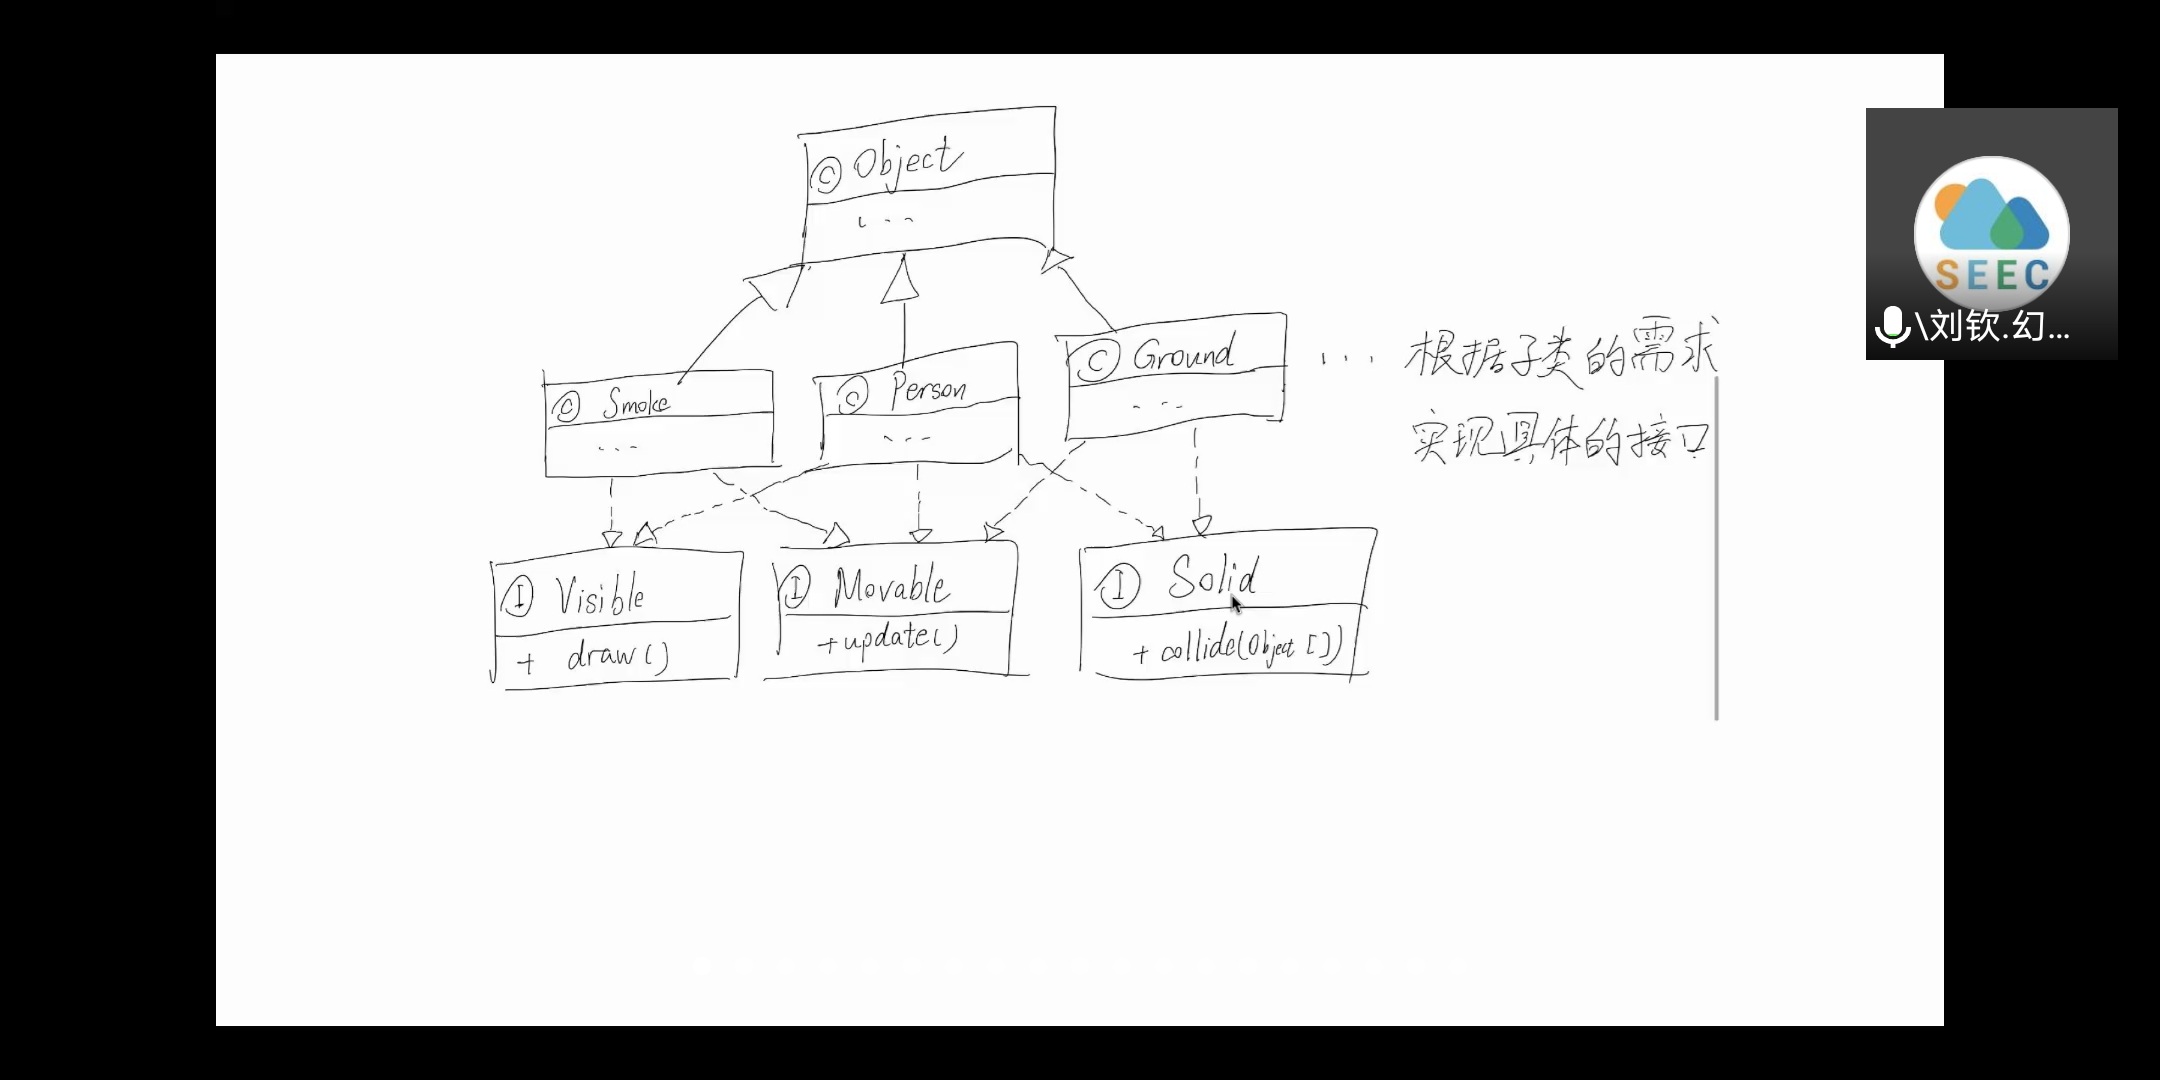 © Object
...
© Smoke
...
© Person
...
© Ground
...
... 根据子类的需求
实现具体的接口
Ⓘ Visible
+ draw()
Ⓘ Movable
+update()
Ⓘ Solid
+ collide(Object [])
SEEC
\刘钦.幻...